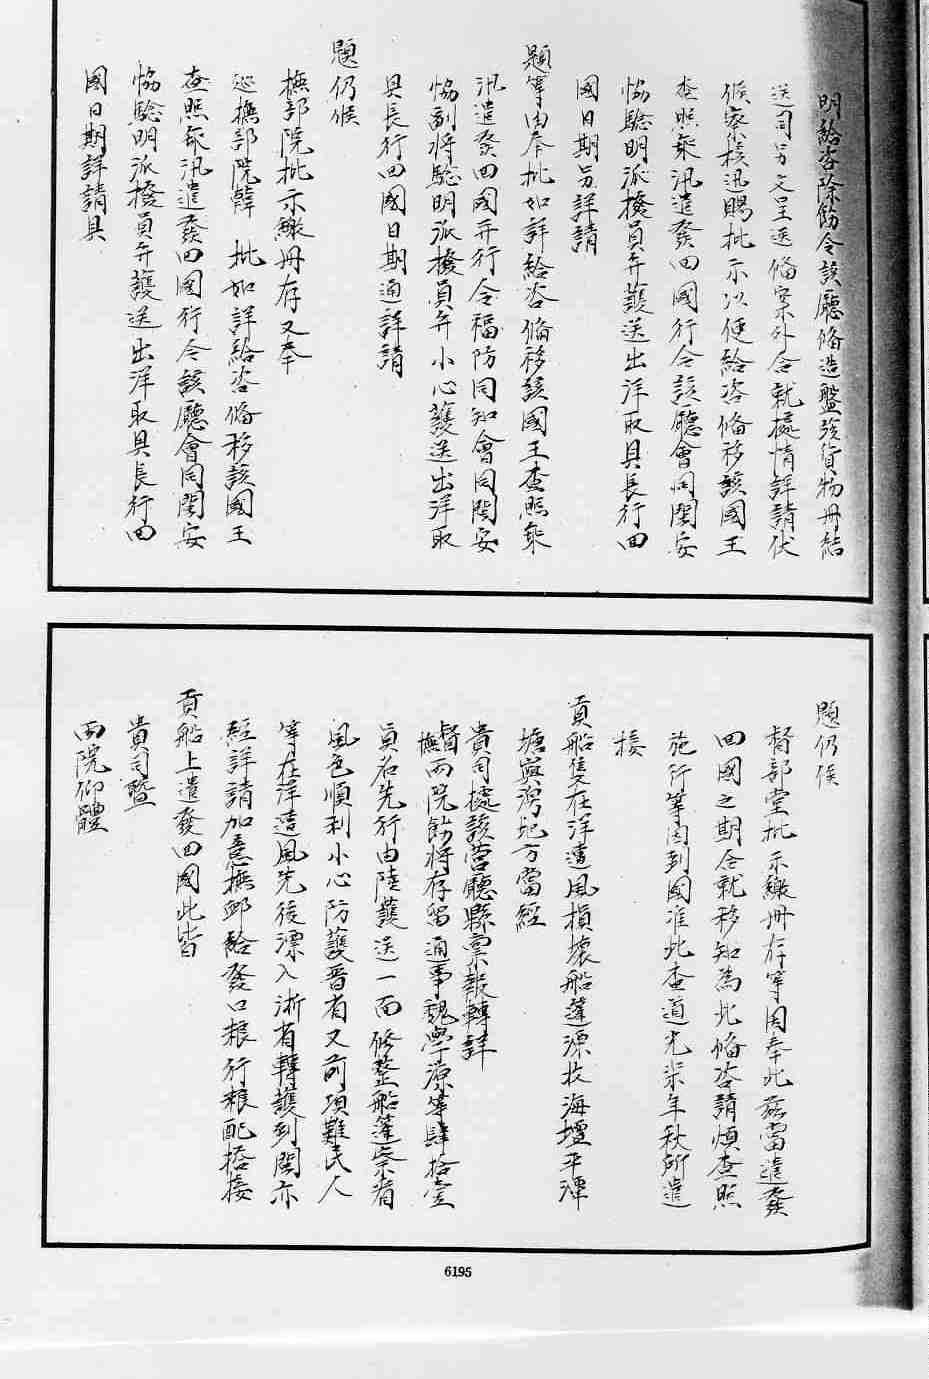 明給咨除飭令該廳備造盤驗貨物册結
送司另文呈送備案外合就據情詳請伏
候察核迅賜批示以便給咨備移該國王
查照乘汛遣發回國行令該廳會同閩安
協驗明派撥員弁護送出洋取具長行回
國日期另詳請
題等由奉批如詳給咨備移該國王查照乘
汛遣發回國并行令福防同知會同閩安
協副將驗明派撥員弁小心護送出洋取
具長行回國日期通詳請
題仍候
撫部院批示繳册存又奉
巡撫部院韓 批如詳給咨備移該國王
查照乘汛遣發回國行令該廳會同閩安
協驗明派撥員弁護送出洋取具長行回
國日期詳請具
題仍候
督部堂批示繳册存等因奉此茲當遣發
回國之期合就移知為此備咨請煩查照
施行等因到國准此查道光柒年秋所遣
接
貢船隻在洋遭風損壞船蓬漂收海壇平潭
塘嶼灣地方當經
貴司據該營廳縣稟報轉詳
督撫兩院飭將存留通事魏學源等肆拾壹
員名先行由陸護送一面修整船蓬索看
風色順利小心防護晉省又前項難民人
等在洋遭風先後漂入浙省轉護到閩亦
經詳請加意撫卹給發口粮行粮配搭接
貢船上遣發回國此皆
貴司暨
兩院仰體
6195